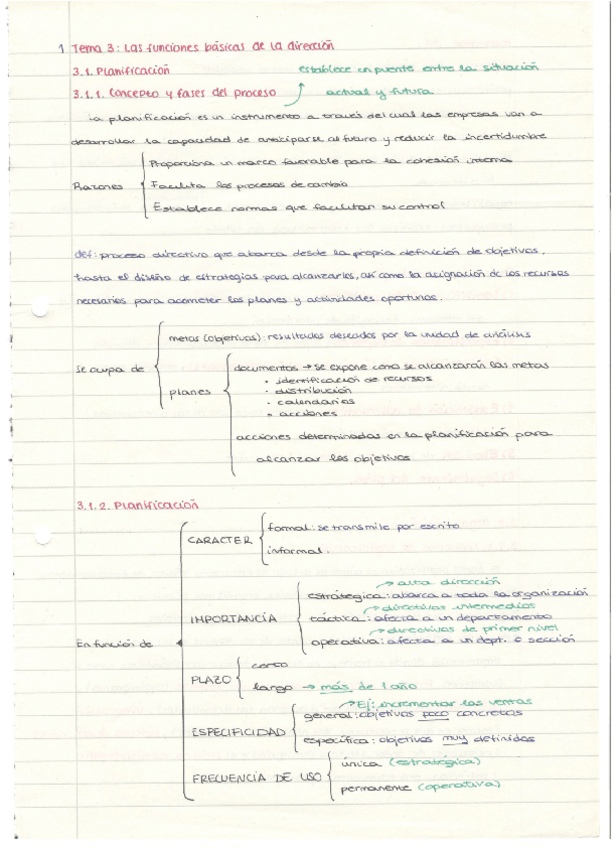 1 Tema 3: Las funciones básicas de la dirección
3.1. Planificación
establece un puente entre la situación
3.1.1. Concepto y fases del proceso
actual y futura
La planificación es un instrumento a través del cual las empresas van a
desarrollar la capacidad de anticiparse al futuro y reducir la incertidumbre
Razones
Proporciona un marco favorable para la cohesión interna
Facilita los procesos de cambio
Establece normas que facilitan su control
def: proceso directivo que abarca desde la propia definición de objetivos,
hasta el diseño de estrategias para alcanzarlos, así como la asignación de los recursos
necesarios para acometer los planes y actividades oportunos.
Se ocupa de
metas (objetivos): resultados deseados por la unidad de análisis
planes
documentos → se expone como se alcanzarán las metas
• identificación de recursos
• distribución
• calendarios
• acciones
acciones determinadas en la planificación para
alcanzar los objetivos
3.1.2. Planificación
En función de
CARACTER
formal: se transmite por escrito
informal.
IMPORTANCIA
→ alta dirección
estratégica: abarca a toda la organización
→ directivos intermedios
táctica: afecta a un departamento
→ directivos de primer nivel
operativa: afecta a un dept. o sección
PLAZO
corto
largo → más de 1 año
ESPECIFICIDAD
→ Ej: incrementar las ventas
general: objetivos poco concretos
específica: objetivos muy definidos
FRECUENCIA DE USO
única (estratégica)
permanente (operativa)